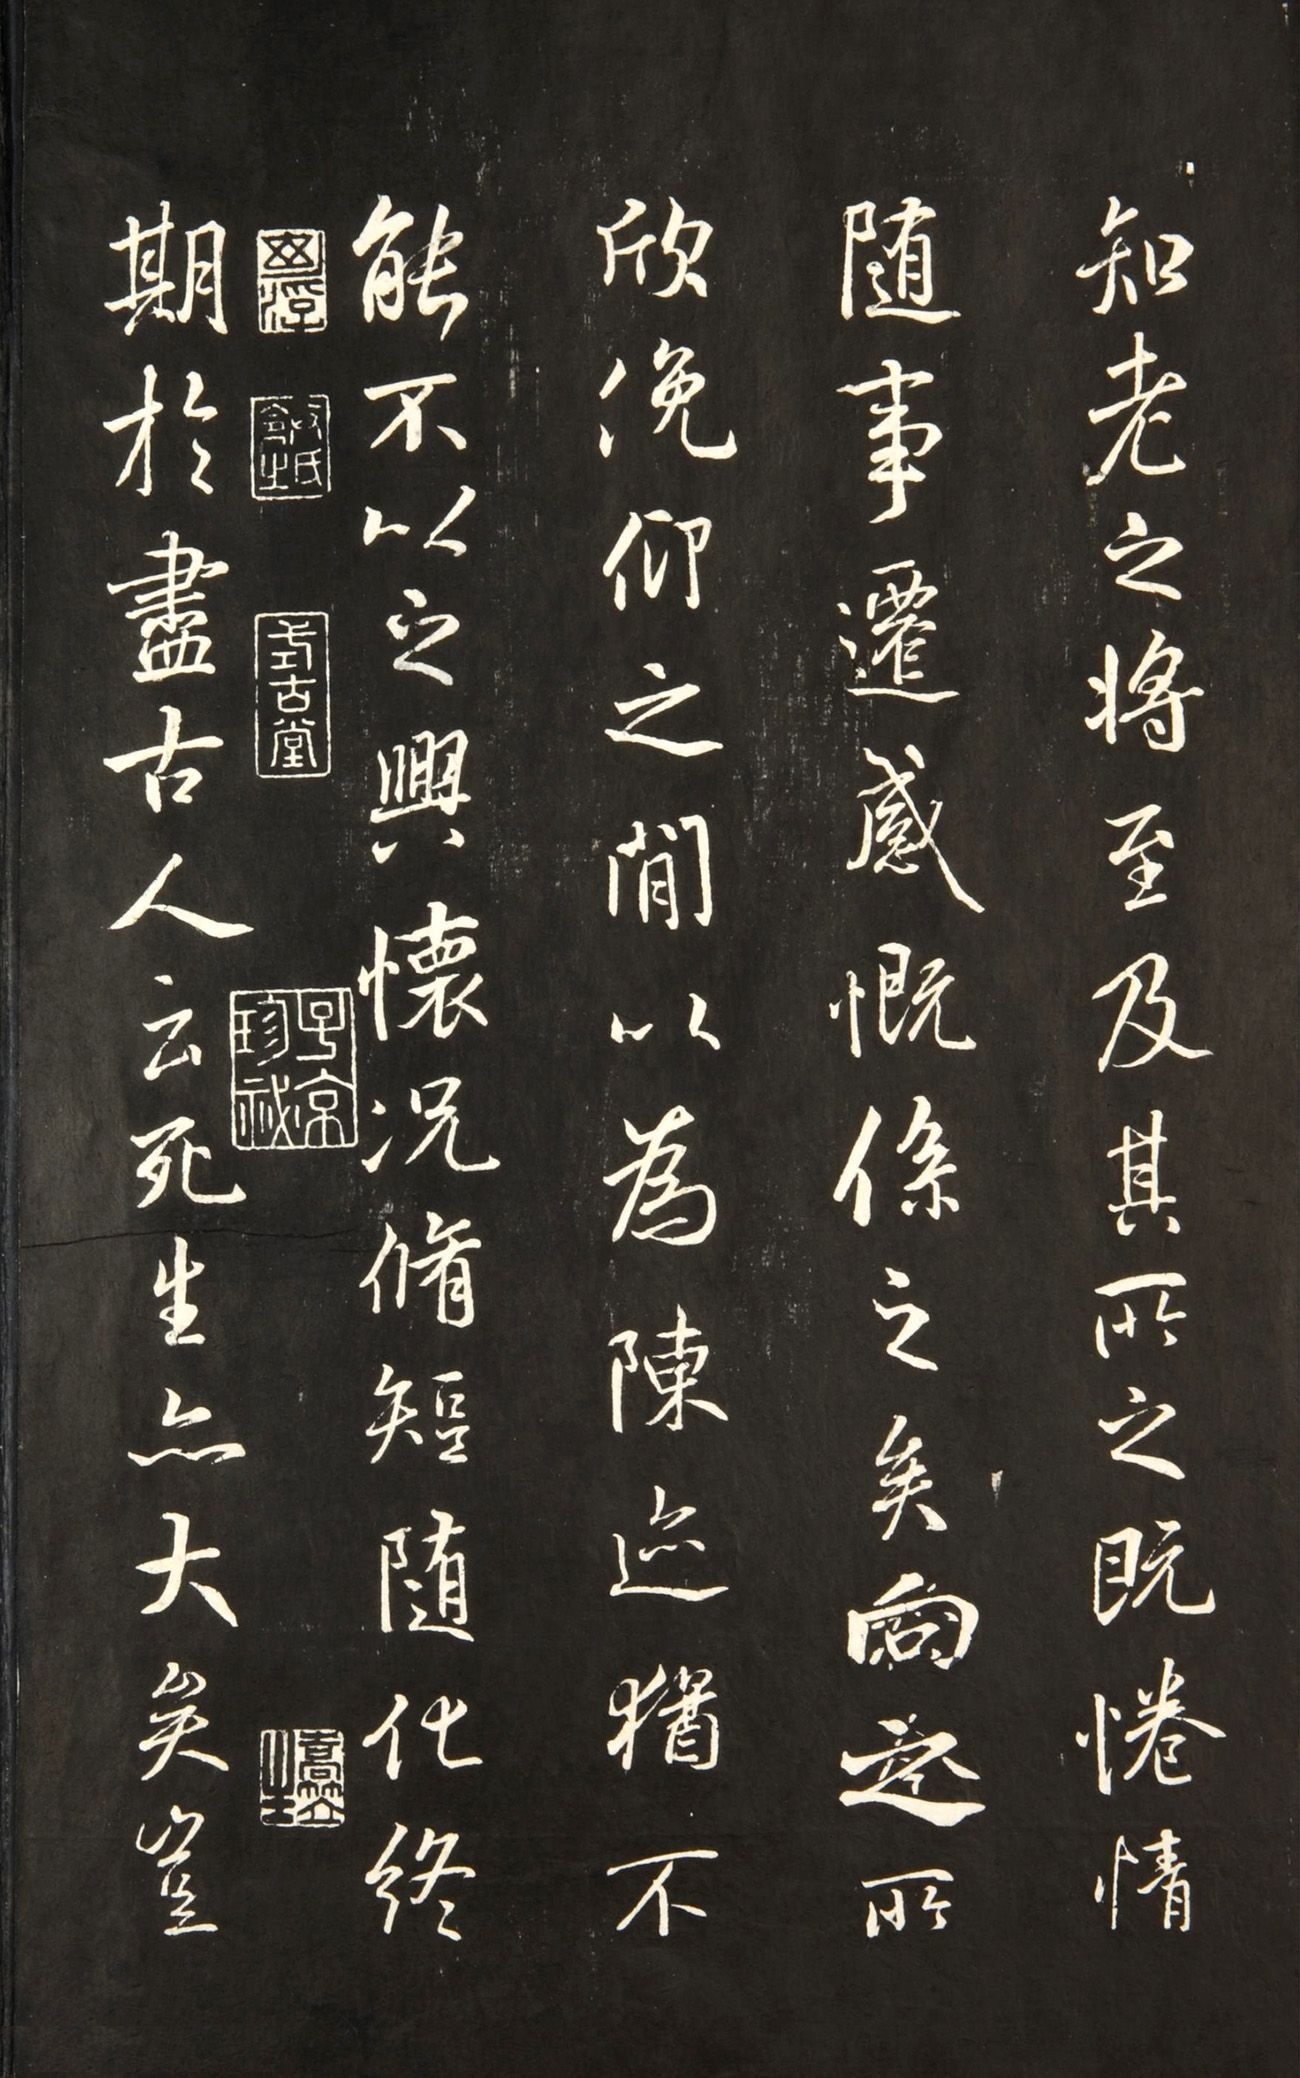 知老之將至及其所之既惓情
随事遷感慨係之矣向之所
欣俛仰之閒以為陳迹猶不
能不以之興懷况脩短随化終
期於盡古人云死生亦大矣豈
式古堂
子京珍祕